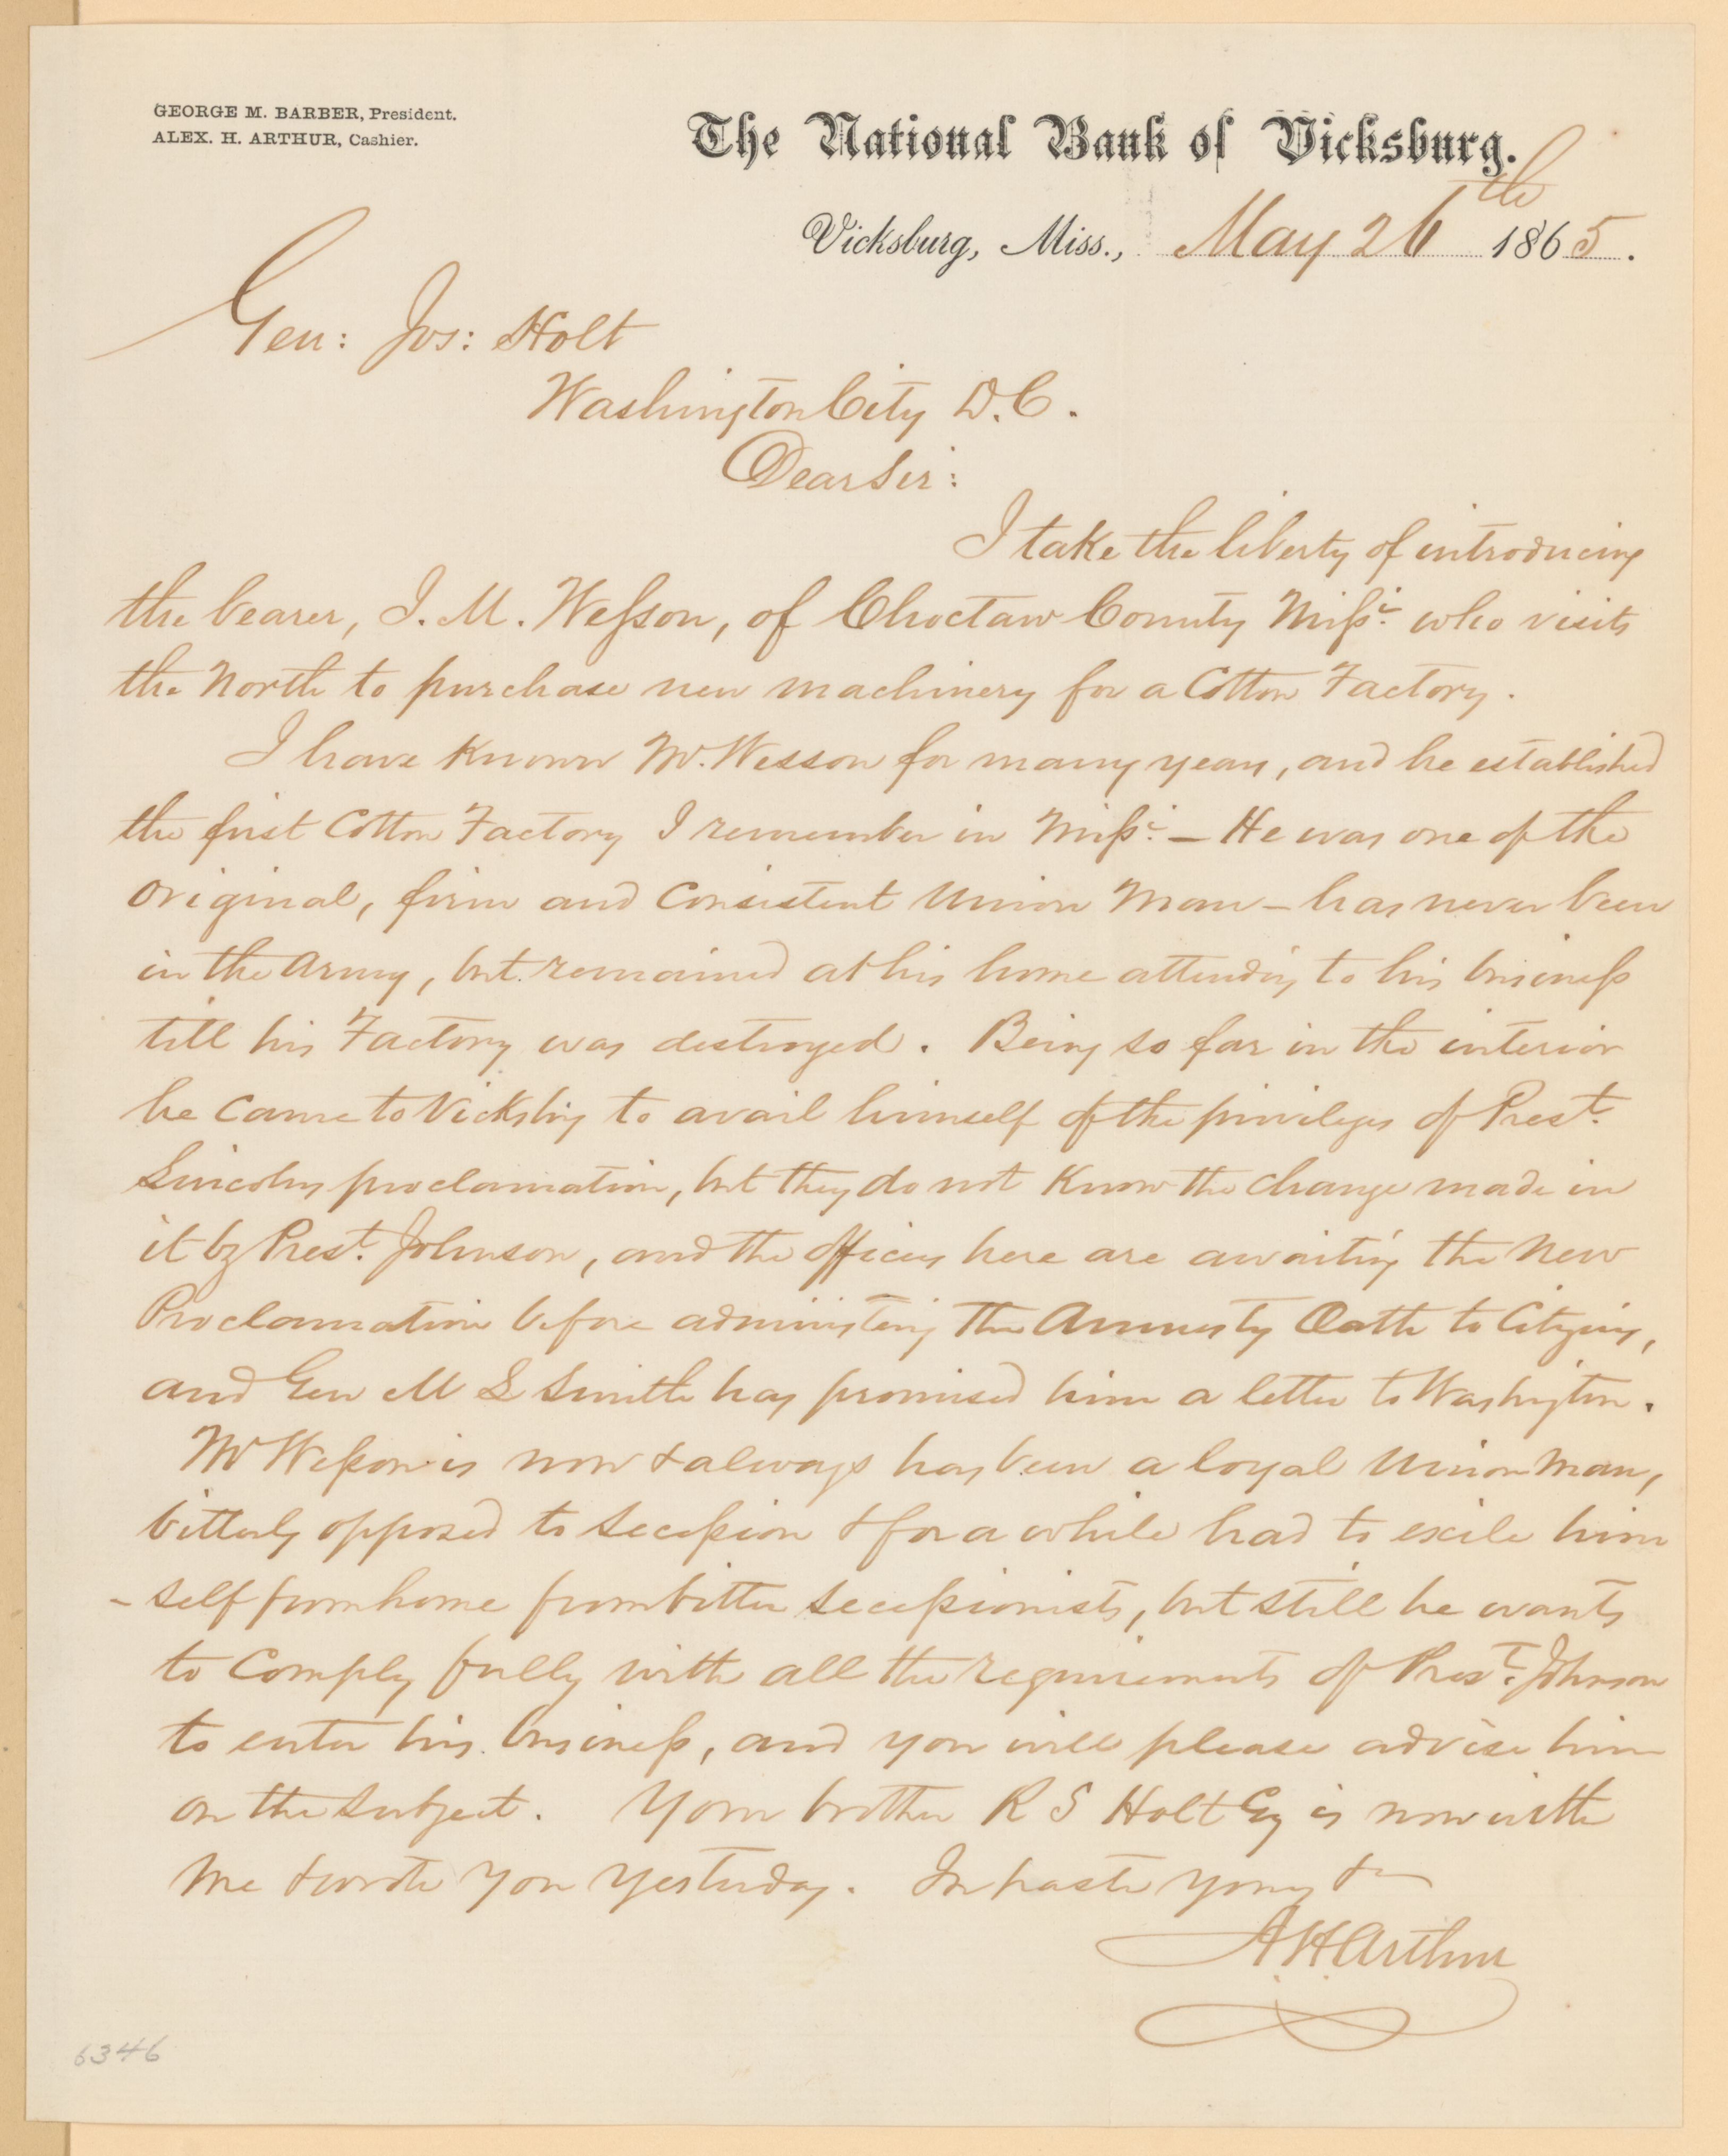 GEORGE M. BARBER, President.
ALEX. H. ARTHUR, Cashier.
The National Bank of Vicksburg.
Vicksburg, Miss., May 26th 1865.
Gen: Jos: Holt
Washington City D.C.
Dear Sir:
I take the liberty of introducing
the bearer, J. M. Wesson, of Choctaw County Missi. who visits
the North to purchase new machinery for a Cotton Factory.
I have Known Mr. Wesson for many years, and he established
the first Cotton Factory I remember in Missi. – He was one of the
original, firm and Consistent Union Man – has never been
in the Army, but remained at his home attending to his business
till his Factory was destroyed. Being so far in the interior
he came to Vicksbg to avail himself of the privileges of Prest.
Lincolns proclamation, but they do not Know the change made in
it by Prest. Johnson, and the officers here are awaiting the New
Proclamation before administering The Amnesty Oath to Citizens,
and Gen M L Smith has promised him a letter to Washington.
Mr Wesson is now & always has been a loyal Union Man,
bitterly opposed to Secession & for a while had to exile him
- self from home from bitter Secessionists, but still he wants
to Comply fully with all the requirements of Prest. Johnson
to enter his business, and you will please advise him
on the Subject. Your brother R S Holt Esq is now with
me & wrote you yesterday. In haste yours &c
A. H. Arthur
6346